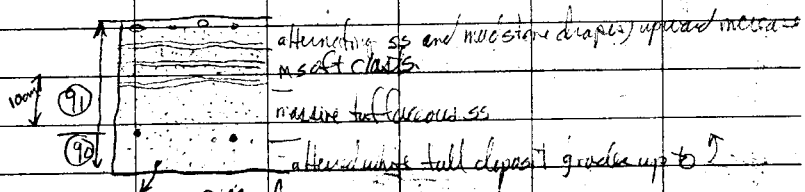 alternating ss and mudstone drapes, upward increase
in soft clasts.
100cm
91
massive tuffaceous ss
90
altered white tuff deposit grades up to ↑